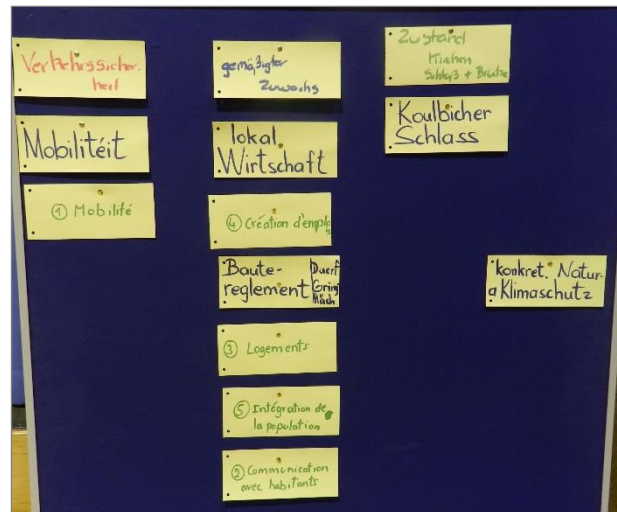 Verkehrssicher-
heit
Mobilitéit
① Mobilité
gemäßigter
Zuwachs
lokal
Wirtschaft
④ Création d'emplois
Baute-
reglement
Duerf
③ Logements
⑤ Intégration de
la population
② Communication
avec habitants
Zustand
Kirchen
Schloß + Brücke
Koulbicher
Schlass
konkret. Natur-
a Klimaschutz